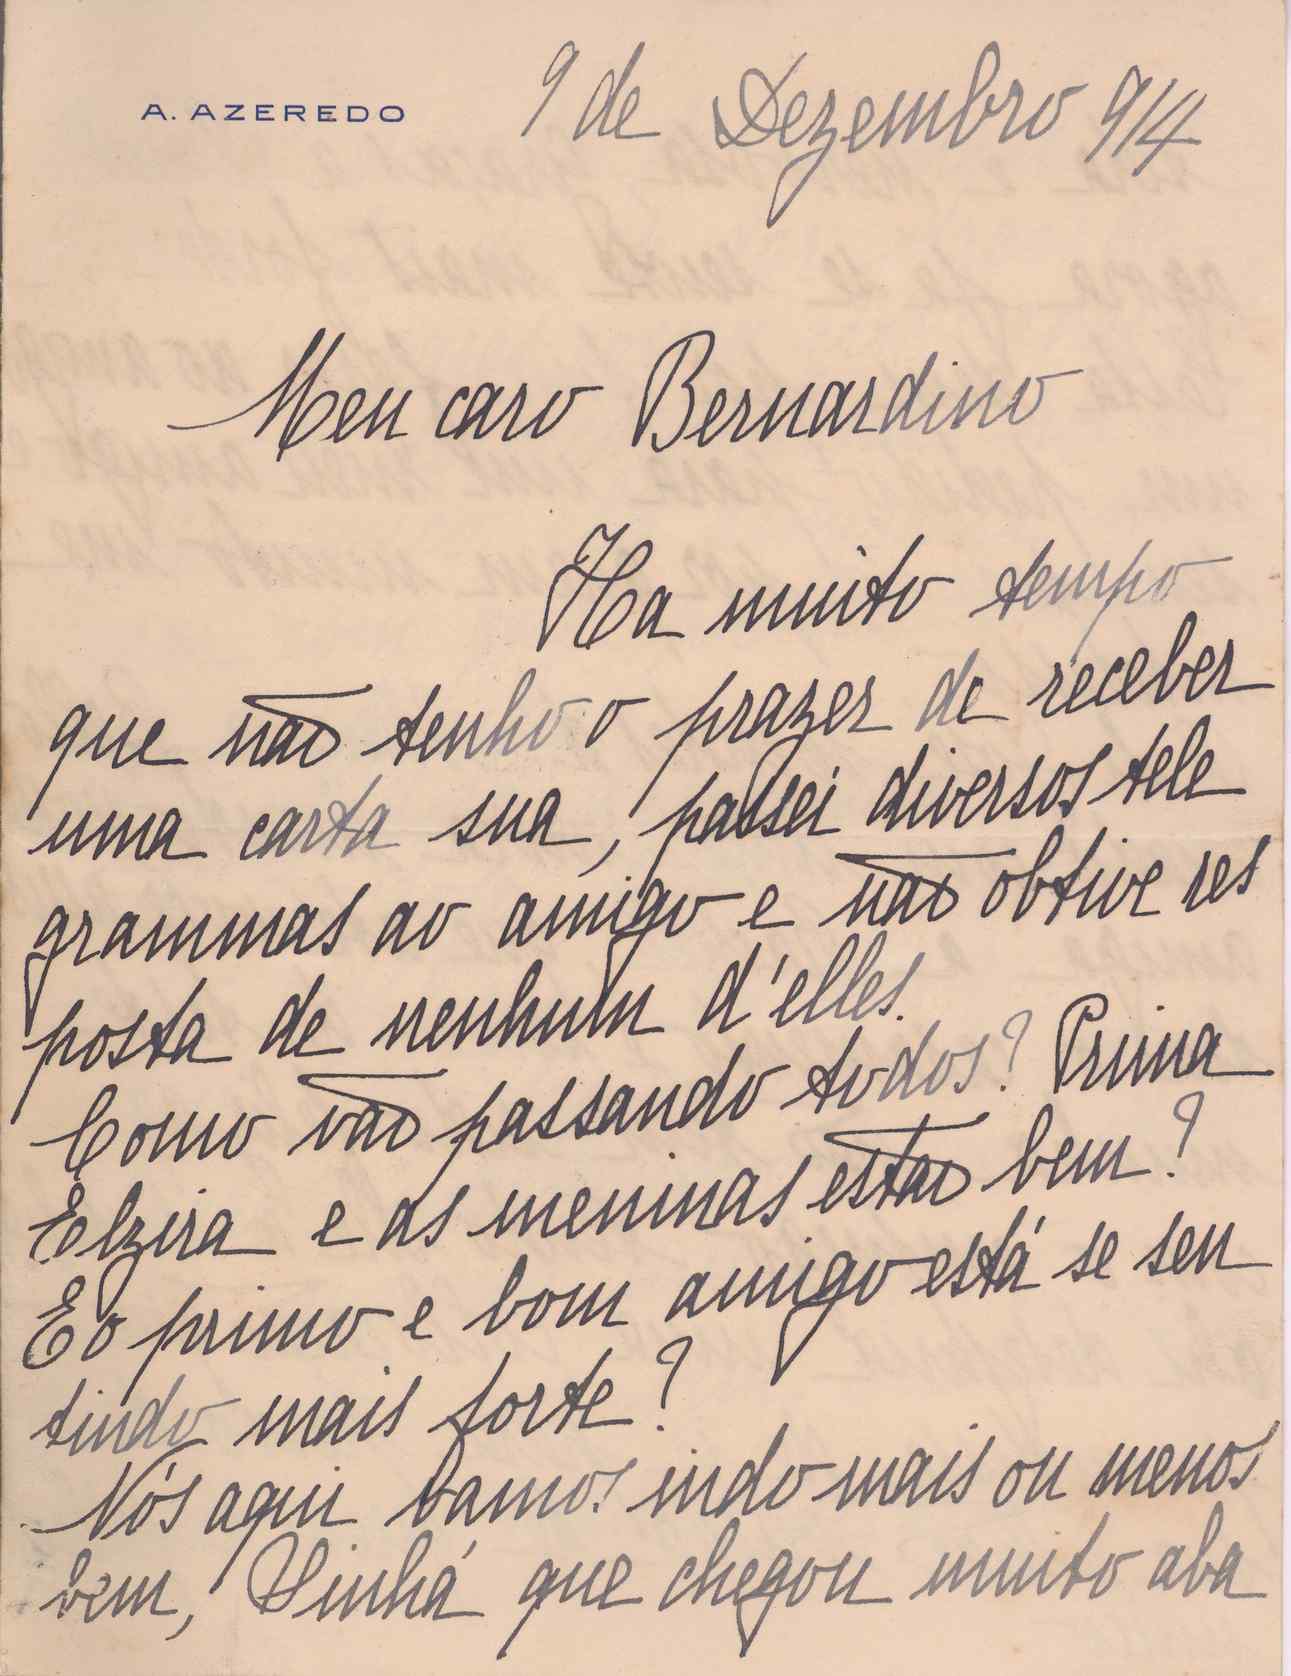 A. AZEREDO
9 de Dezembro 914
Meu caro Bernardino
Ha muito tempo
que não tenho o prazer de receber
uma carta sua, passei diversos tele
grammas ao amigo e não obtive res
posta de nenhum d'elles.
Como vão passando todos? Prima
Elzira e as meninas estão bem?
E o primo e bom amigo está se sen
tindo mais forte?
Nós aqui vamos indo mais ou menos
bem, Sinhá que chegou muito aba